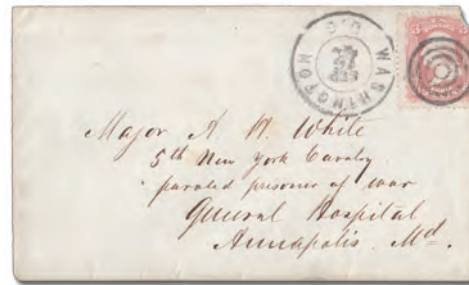 WASHINGTON D.C.
3 3
Major A. H. White
5th New York Cavalry
paroled prisoner of war
General Hospital
Annapolis. Md.